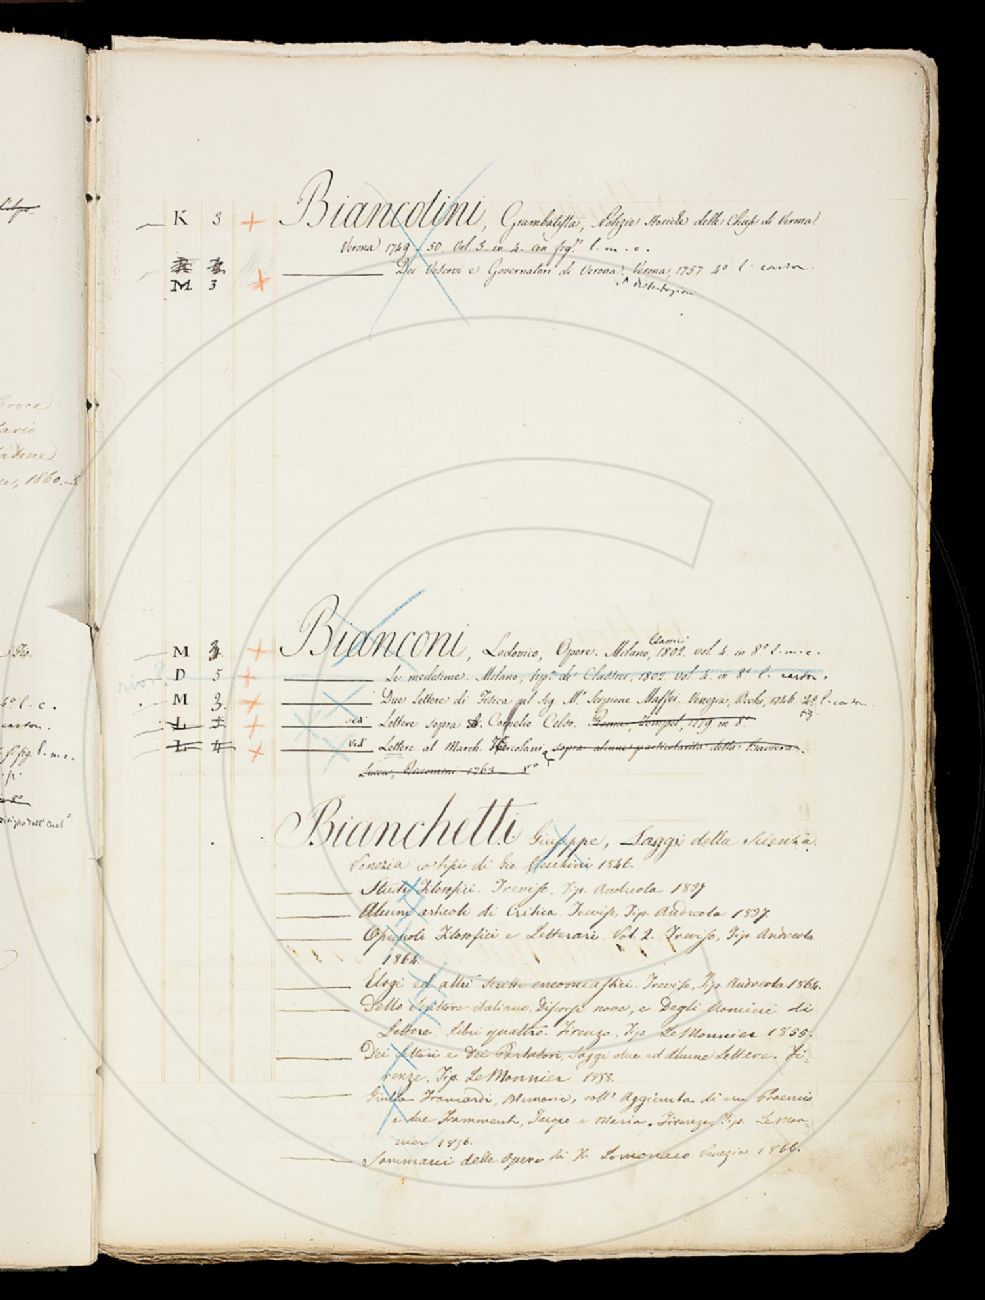 K 3 + Biancolini, Giambatista, Notizie Storiche delle Chiese di Verona
Verona 1749-50. Vol. 3. in 4. con fig. l. m. c.
Dei Vescovi e Governatori di Verona, Verona, 1757 4º l. carton.
M 3 + Dissertazioni
M 3 + Bianconi, Lodovico, Opere. Milano, Classici 1802. vol. 4. in 8º l. m. c.
D 5 + Le medesime. Milano, tip. de' Classici, 1802 vol. 4. in 8º l. carton.
M 3 + Due Lettere di Fisica al Sig. M. Scipione Maffei. Venezia, Occhi, 1746 4º l. carton.
fig.
L + vedi Lettere sopra A. Cornelio Celso. Roma, 1779 in 8º
L 4 + Vedi Lettere al March. Hercolani sopra alcune particolarità della Baviera.
Lucca, Riccomini 1763 8º
Bianchetti Giuseppe, Saggi della Scienza.
Venezia co' tipi di Gio. Cecchini 1846.
Studi Filosofici. Treviso, Tip. Andreola 1837
Alcuni articoli di Critica. Treviso, Tip. Andreola 1837.
Opuscoli Filosofici e Letterari. Vol. 2. Treviso, Tip. Andreola
1864.
Elogi ed altri Scritti encomiastici. Treviso, Tip. Andreola 1864.
Dello Scrittore Italiano, Discorsi nove, e Degli Uomini di
Lettere, libri quattro. Firenze, Tip. Le Monnier 1855.
Dei Lettori e Dei Parlatori, Saggi due ed alcune Lettere. Fi-
renze. Tip. Le Monnier 1858.
Giulia Francardi, Memorie, coll' Aggiunta di un Proemio
e due Frammenti, Jacopo e Maria. Firenze, Tip. Le Mon-
nier 1856.
Sommario delle Opere di F. Lomonaco Venezia